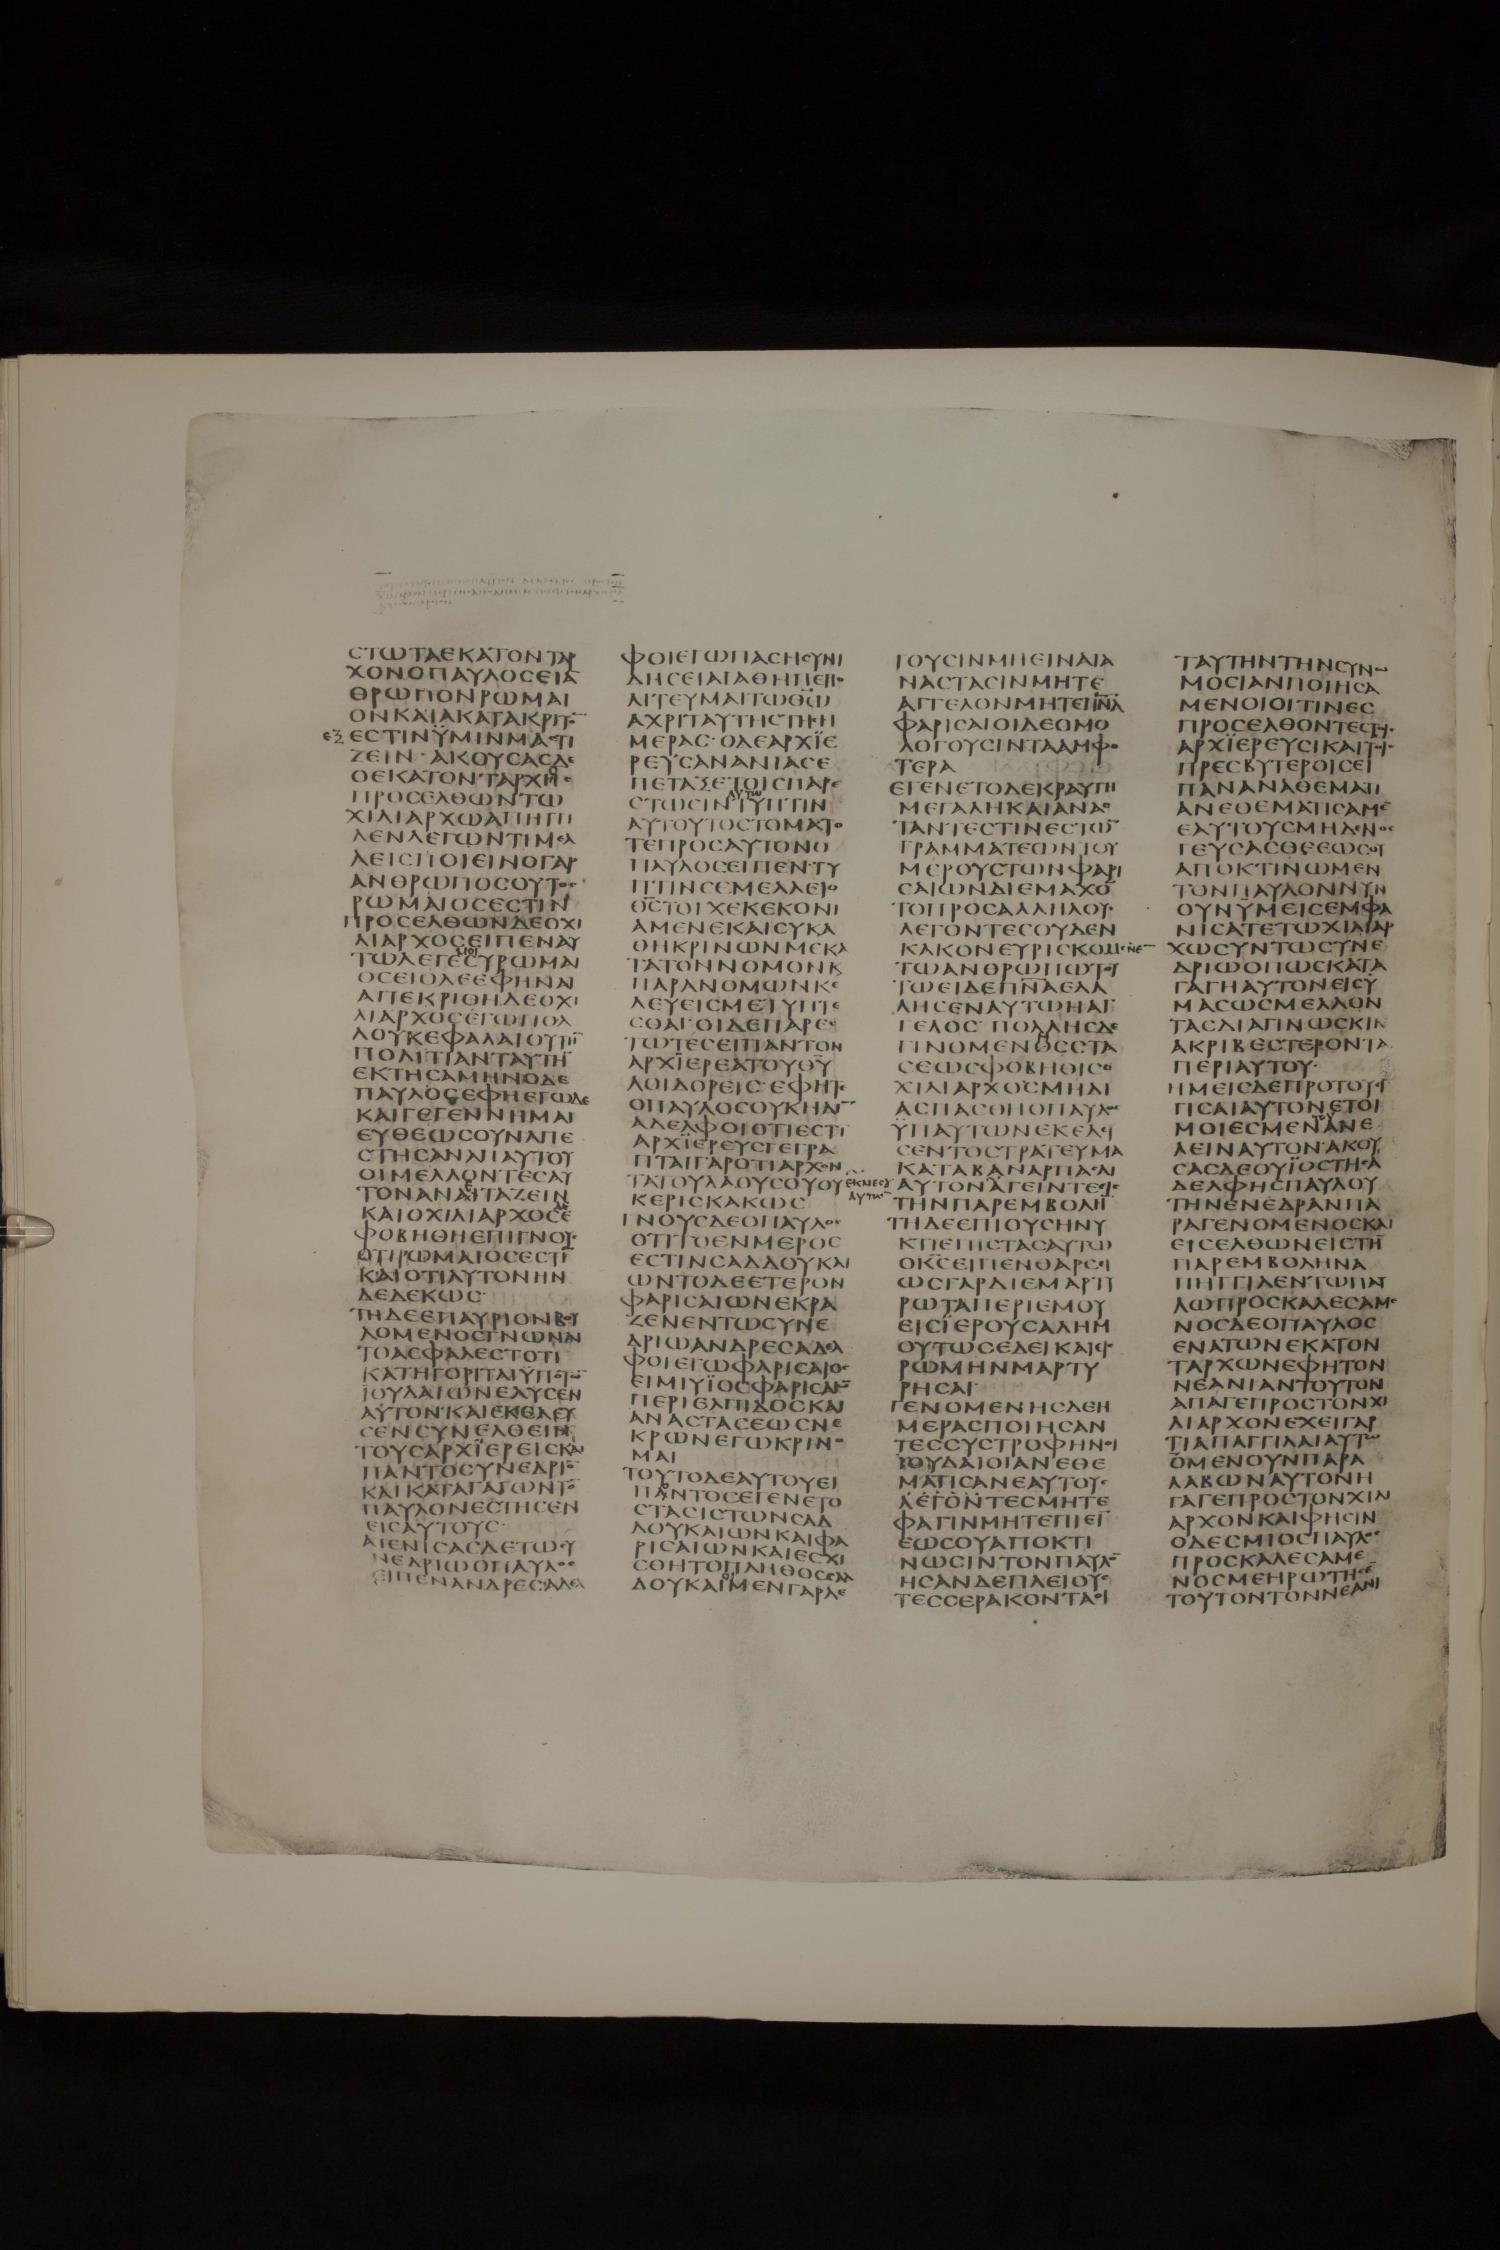 ϹΤΩΤΑΕΚΑΤΟΝΤΑΡ
ΧΟΝΟΠΑΥΛΟϹΕΙΑ̅
ΘΡΩΠΟΝΡΩΜΑΙ
ΟΝΚΑΙΑΚΑΤΑΚΡΙΤΟ̅
ΕΞ ΕϹΤΙΝΫΜΙΝΜΑϹΤΙ
ΖΕΙΝ· ΑΚΟΥϹΑϹΔΕ
ΟΕΚΑΤΟΝΤΑΡΧΗϹ
ΠΡΟϹΕΛΘΩΝΤΩ
ΧΙΛΙΑΡΧΩΑΠΗΓΓΙ
ΛΕΝΛΕΓΩΝΤΙΜΕΛ
ΛΕΙϹΠΟΙΕΙΝΟΓΑΡ
ΑΝΘΡΩΠΟϹΟΥΤΟϹ
ΡΩΜΑΙΟϹΕϹΤΙΝ
ΠΡΟϹΕΛΘΩΝΔΕΟΧΙ
ΛΙΑΡΧΟϹΕΙΠΕΝΑΥ
ΤΩΛΕΓΕϹΥΡΩΜΑΙ
ΟϹΕΙΟΔΕΕΦΗΝΑΙ
ΑΠΕΚΡΙΘΗΔΕΟΧΙ
ΛΙΑΡΧΟϹΕΓΩΠΟΛ
ΛΟΥΚΕΦΑΛΑΙΟΥΤΗ̅
ΠΟΛΙΤΙΑΝΤΑΥΤΗ̅
ΕΚΤΗϹΑΜΗΝΟΔΕ
ΠΑΥΛΟϹΕΦΗΕΓΩΔΕ
ΚΑΙΓΕΓΕΝΝΗΜΑΙ
ΕΥΘΕΩϹΟΥΝΑΠΕ
ϹΤΗϹΑΝΑΠΑΥΤΟΥ
ΟΙΜΕΛΛΟΝΤΕϹΑΥ
ΤΟΝΑΝΑΙΤΑΖΕΙΝ
ΚΑΙΟΧΙΛΙΑΡΧΟϹΕ
ΦΟΒΗΘΗΕΠΙΓΝΟΥϹ
ΟΤΙΡΩΜΑΙΟϹΕϹΤΙ̅
ΚΑΙΟΤΙΑΥΤΟΝΗΝ
ΔΕΔΕΚΩϹ·
ΤΗΔΕΕΠΑΥΡΙΟΝΒΟΥ
ΛΟΜΕΝΟϹΓΝΩΝΑΙ
ΤΟΑϹΦΑΛΕϹΤΟΤΙ
ΚΑΤΗΓΟΡΙΤΑΙΫΠΟΤΩ̅
ΪΟΥΔΑΙΩΝΕΛΥϹΕΝ
ΑΥΤΟΝ·ΚΑΙΕΚΕΛΕΥ
ϹΕΝϹΥΝΕΛΘΕΙΝ
ΤΟΥϹΑΡΧΪΕΡΕΙϹΚΑΙ
ΠΑΝΤΟϹΥΝΕΔΡΙΟ̅
ΚΑΙΚΑΤΑΓΑΓΩΝΤΟ̅
ΠΑΥΛΟΝΕϹΤΗϹΕΝ
ΕΙϹΑΥΤΟΥϹ·
ΑΤΕΝΙϹΑϹΔΕΤΩϹΥ
ΝΕΔΡΙΩΟΠΑΥΛΟϹ
ΕΙΠΕΝΑΝΔΡΕϹΑΔΕΛ
ΦΟΙΕΓΩΠΑϹΗϹΥΝΙ
ΔΗϹΕΙΑΓΑΘΗΠΕΠΟ
ΛΙΤΕΥΜΑΙΤΩΘ̅Ω̅
ΑΧΡΙΤΑΥΤΗϹΤΗϹΗ
ΜΕΡΑϹ· ΟΔΕΑΡΧΪΕ
ΡΕΥϹΑΝΑΝΙΑϹΕ
ΠΕΤΑΞΕΤΟΙϹΠΑΡΕ
ϹΤΩϹΙΝΤΥΠΤΙΝ
ΑΥΤΩ
ΑΥΤΟΥΤΟϹΤΟΜΑΤΟ
ΤΕΠΡΟϹΑΥΤΟΝΟ
ΠΑΥΛΟϹΕΙΠΕΝ·ΤΥ
ΠΤΙΝϹΕΜΕΛΛΕΙΟ
Θ̅Ϲ̅ΤΟΙΧΕΚΕΚΟΝΙ
ΑΜΕΝΕΚΑΙϹΥΚΑ
ΘΗΚΡΙΝΩΝΜΕΚΑ
ΤΑΤΟΝΝΟΜΟΝΚΑΙ
ΠΑΡΑΝΟΜΩΝΚΕ
ΛΕΥΕΙϹΜΕΤΥΠΤΕ
ϹΘΑΙ·ΟΙΔΕΠΑΡΕϹ
ΤΩΤΕϹΕΙΠΑΝΤΟΝ
ΑΡΧΪΕΡΕΑΤΟΥΘ̅Υ̅
ΛΟΙΔΟΡΕΙϹ·ΕΦΗΤΕ
ΟΠΑΥΛΟϹΟΥΚΗΔΙ̅
ΑΔΕΛΦΟΙΟΤΙΕϹΤΙ
ΑΡΧΪΕΡΕΥϹΓΕΓΡΑ
ΠΤΑΙΓΑΡΟΤΙΑΡΧΟΝ
ΤΑΤΟΥΛΑΟΥϹΟΥΟΥ
ΚΕΡΙϹΚΑΚΩϹ
ΓΝΟΥϹΔΕΟΠΑΥΛΟϹ
ΟΤΙΤΟΕΝΜΕΡΟϹ
ΕϹΤΙΝϹΑΔΔΟΥΚΑΙ
ΩΝΤΟΔΕΕΤΕΡΟΝ
ΦΑΡΙϹΑΙΩΝΕΚΡΑ
ΖΕΝΕΝΤΩϹΥΝΕ
ΔΡΙΩΑΝΔΡΕϹΑΔΕΛ
ΦΟΙΕΓΩΦΑΡΙϹΑΙΟϹ
ΕΙΜΙΥΪΟϹΦΑΡΙϹΑΙΩ̅
ΠΕΡΙΕΛΠΙΔΟϹΚΑΙ
ΑΝΑϹΤΑϹΕΩϹΝΕ
ΚΡΩΝΕΓΩΚΡΙΝΟ
ΜΑΙ
ΤΟΥΤΟΔΕΑΥΤΟΥΕΙ
ΠΑΝΤΟϹΕΓΕΝΕΤΟ
ϹΤΑϹΙϹΤΩΝϹΑΔ
ΔΟΥΚΑΙΩΝΚΑΙΦΑ
ΡΙϹΑΙΩΝΚΑΙΕϹΧΙ
ϹΘΗΤΟΠΛΗΘΟϹϹΑΔ
ΔΟΥΚΑΙΜΕΝΓΑΡΛΕ
ΓΟΥϹΙΝΜΗΕΙΝΑΙΑ
ΝΑϹΤΑϹΙΝΜΗΤΕ
ΑΓΓΕΛΟΝΜΗΤΕΠ̅Ν̅Α̅
ΦΑΡΙϹΑΙΟΙΔΕΟΜΟ
ΛΟΓΟΥϹΙΝΤΑΑΜΦΟ
ΤΕΡΑ
ΕΓΕΝΕΤΟΔΕΚΡΑΥΓΗ
ΜΕΓΑΛΗΚΑΙΑΝΑϹ
ΤΑΝΤΕϹΤΙΝΕϹΤΩ̅
ΓΡΑΜΜΑΤΕΩΝΤΟΥ
ΜΕΡΟΥϹΤΩΝΦΑΡΙ
ϹΑΙΩΝΔΙΕΜΑΧΟ̅
ΤΟΠΡΟϹΑΛΛΗΛΟΥϹ
ΛΕΓΟΝΤΕϹΟΥΔΕΝ
ΚΑΚΟΝΕΥΡΙϹΚΟΜΕΝΕ̅
ΤΩΑΝΘΡΩΠΩΤΟΥ
ΤΩΕΙΔΕΠ̅Ν̅Α̅ΕΛΑ
ΛΗϹΕΝΑΥΤΩΗΑΓ
ΓΕΛΟϹ· ΠΟΛΛΗϹΔΕ
ΓΙΝΟΜΕΝΗϹϹΤΑ
ϹΕΩϹΦΟΒΗΘΙϹΟ
ΧΙΛΙΑΡΧΟϹΜΗΔΙ
ΑϹΠΑϹΘΗΟΠΑΥΛΟϹ
ΫΠΑΥΤΩΝΕΚΕΛΕΥ
ϹΕΝΤΟϹΤΡΑΤΕΥΜΑ
ΚΑΤΑΒΑΝΑΡΠΑϹΑΙ
ΕΚΜΕϹΟΥ
ΑΥΤΩ̅
ΑΥΤΟΝΑΓΕΙΝΤΕΕΙϹ
ΤΗΝΠΑΡΕΜΒΟΛΗ̅
ΤΗΔΕΕΠΙΟΥϹΗΝΥ
ΚΤΙΕΠΙϹΤΑϹΑΥΤΩ
ΟΚ̅Ϲ̅ΕΙΠΕΝΘΑΡϹΕΙ
ΩϹΓΑΡΔΙΕΜΑΡΤΥ
ΡΩΤΑΠΕΡΙΕΜΟΥ
ΕΙϹΪΕΡΟΥϹΑΛΗΜ
ΟΥΤΩϹΕΔΕΙΚΑΙΕΙϹ
ΡΩΜΗΝΜΑΡΤΥ
ΡΗϹΑΙ·
ΓΕΝΟΜΕΝΗϹΔΕΗ
ΜΕΡΑϹΠΟΙΗϹΑΝ
ΤΕϹϹΥϹΤΡΟΦΗΝΟΙ
ΪΟΥΔΑΙΟΙΑΝΕΘΕ
ΜΑΤΙϹΑΝΕΑΥΤΟΥϹ
ΛΕΓΟΝΤΕϹΜΗΤΕ
ΦΑΓΙΝΜΗΤΕΠΙΕΙ̅
ΕΩϹΟΥΑΠΟΚΤΙ
ΝΩϹΙΝΤΟΝΠΑΥΛΟ̅
ΗϹΑΝΔΕΠΛΕΙΟΥϹ
ΤΕϹϹΕΡΑΚΟΝΤΑΟΙ
ΤΑΥΤΗΝΤΗΝϹΥΝΩ
ΜΟϹΙΑΝΠΟΙΗϹΑ
ΜΕΝΟΙΟΙΤΙΝΕϹ
ΠΡΟϹΕΛΘΟΝΤΕϹΤΟΙϹ
ΑΡΧΪΕΡΕΥϹΙΚΑΙΤΟΙϹ
ΠΡΕϹΒΥΤΕΡΟΙϹΕΙ
ΠΑΝΑΝΑΘΕΜΑΤΙ
ΑΝΕΘΕΜΑΤΙϹΑΜΕ
ΕΑΥΤΟΥϹΜΗΔΕΝΟϹ
ΓΕΥϹΑϹΘΕΕΩϹΟΥ
ΑΠΟΚΤΙΝΩΜΕΝ
ΤΟΝΠΑΥΛΟΝΝΥΝ
ΟΥΝΫΜΕΙϹΕΜΦΑ
ΝΙϹΑΤΕΤΩΧΙΛΙΑΡ
ΧΩϹΥΝΤΩϹΥΝΕ
ΔΡΙΩΟΠΩϹΚΑΤΑ
ΓΑΓΗΑΥΤΟΝΕΙϹΥ
ΜΑϹΩϹΜΕΛΛΟΝ
ΤΑϹΔΙΑΓΙΝΩϹΚΙΝ
ΑΚΡΙΒΕϹΤΕΡΟΝΤΑ
ΠΕΡΙΑΥΤΟΥ·
ΗΜΕΙϹΔΕΠΡΟΤΟΥΕΓ
ΓΙϹΑΙΑΥΤΟΝΕΤΟΙ
ΜΟΙΕϹΜΕΝΑΝΕ
ΤΟΥ
ΛΕΙΝΑΥΤΟΝ·ΑΚΟΥ
ϹΑϹΔΕΟΥΪΟϹΤΗϹΑ
ΔΕΛΦΗϹΠΑΥΛΟΥ
ΤΗΝΕΝΕΔΡΑΝΠΑ
ΡΑΓΕΝΟΜΕΝΟϹΚΑΙ
ΕΙϹΕΛΘΩΝΕΙϹΤΗ̅
ΠΑΡΕΜΒΟΛΗΝΑ
ΠΗΓΓΙΛΕΝΤΩΠΑΥ
ΛΩΠΡΟϹΚΑΛΕϹΑΜΕ
ΝΟϹΔΕΟΠΑΥΛΟϹ
ΕΝΑΤΩΝΕΚΑΤΟΝ
ΤΑΡΧΩΝΕΦΗΤΟΝ
ΝΕΑΝΙΑΝΤΟΥΤΟΝ
ΑΠΑΓΕΠΡΟϹΤΟΝΧΙ
ΛΙΑΡΧΟΝΕΧΕΙΓΑΡ
ΤΙΑΠΑΓΓΙΛΑΙΑΥΤΩ
ΟΜΕΝΟΥΝΠΑΡΑ
ΛΑΒΩΝΑΥΤΟΝΗ
ΓΑΓΕΠΡΟϹΤΟΝΧΙΛΙ
ΑΡΧΟΝΚΑΙΦΗϹΙΝ
ΟΔΕϹΜΙΟϹΠΑΥΛΟϹ
ΠΡΟϹΚΑΛΕϹΑΜΕ
ΝΟϹΜΕΗΡΩΤΗϹΕ̅
ΤΟΥΤΟΝΤΟΝΝΕΑΝΙ